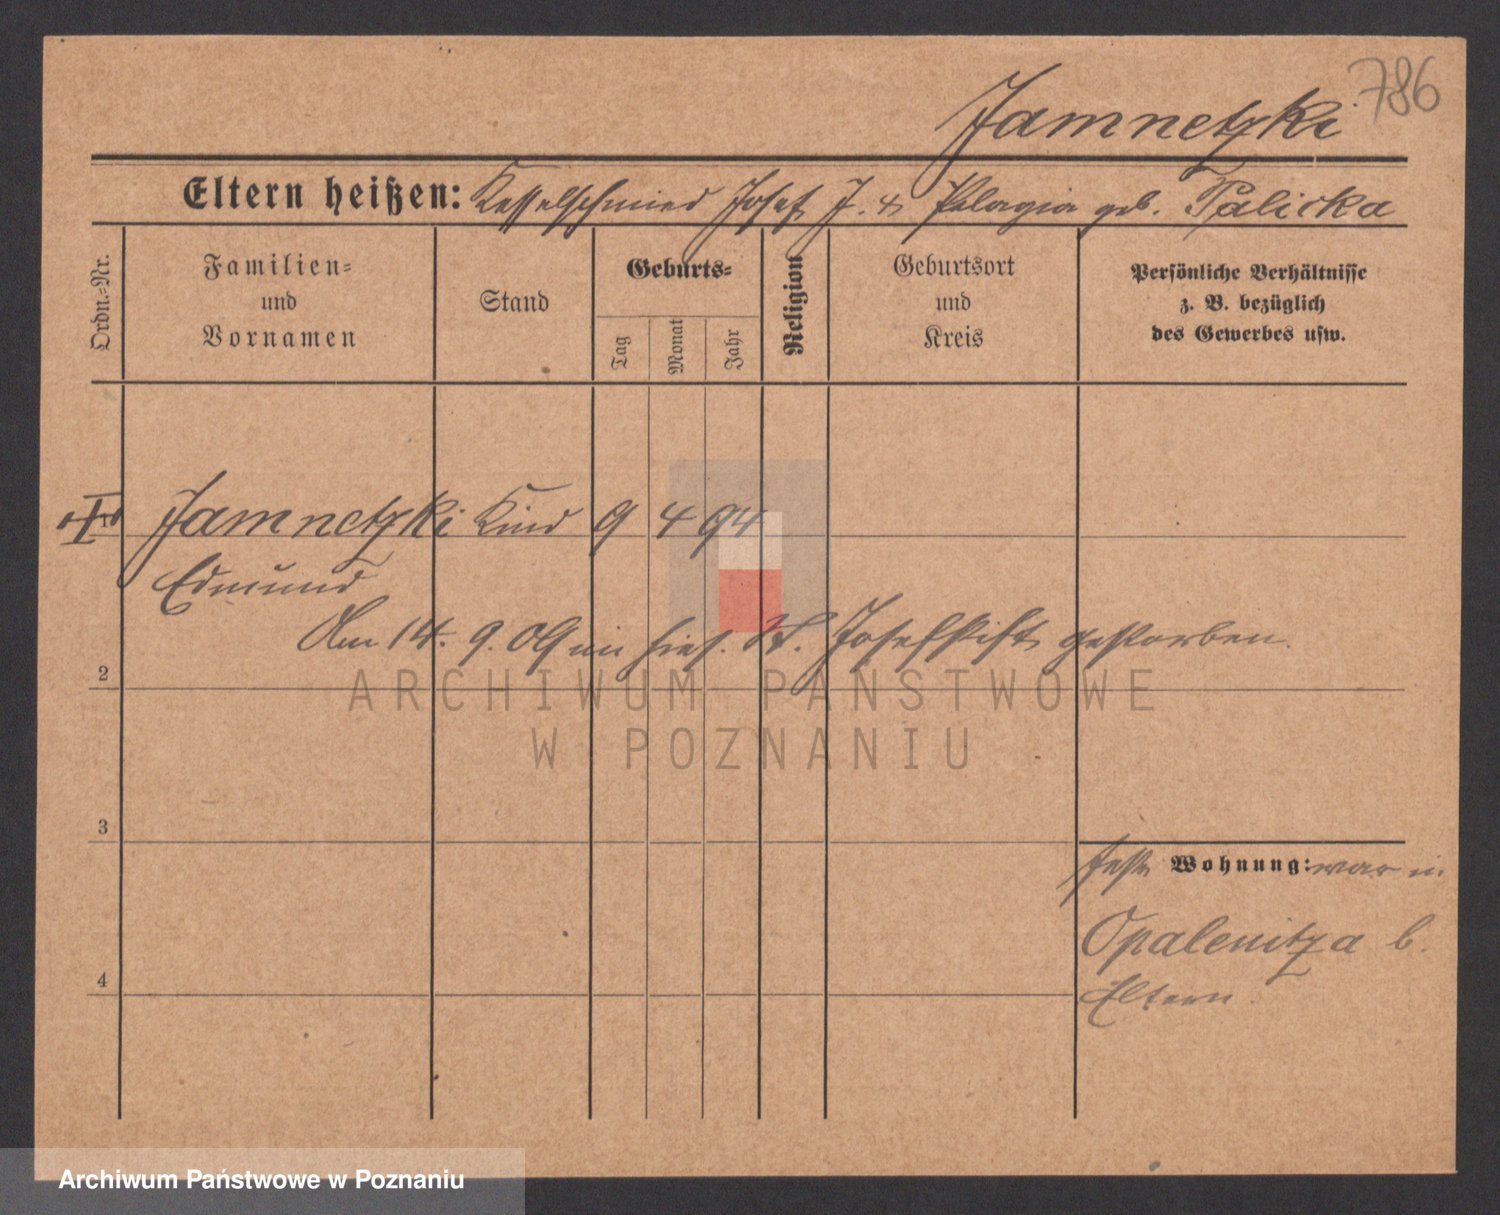 786
Jamnetzki
Eltern heißen: Kesselschmied Josef J. & Pelagia geb. Palicka
Ordn.=Nr.
Familien=
und
Vornamen
Stand
Geburts=
Tag
Monat
Jahr
Religion
Geburtsort
und
Kreis
Persönliche Verhältnisse
z. B. bezüglich
des Gewerbes usw.
1 Jamnetzki Kind 9 4 94
Edmund
Am 14. 9. 09 im hies. St. Josefstift gestorben.
2
ARCHIWUM PAŃSTWOWE
W POZNANIU
3
feste Wohnung: war in
Opalenitza b.
Eltern.
4
Archiwum Państwowe w Poznaniu